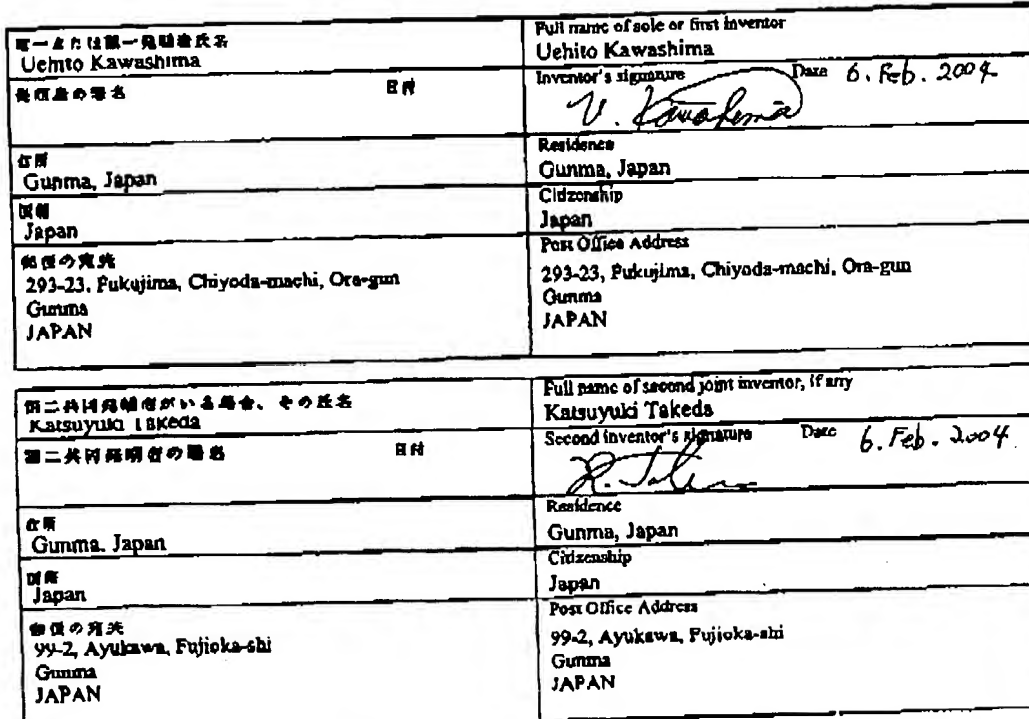 唯一または第一発明者氏名
Uehito Kawashima
発明者の署名 日付
住所
Gunma, Japan
国籍
Japan
郵便の宛先
293-23, Fukujima, Chiyoda-machi, Ora-gun
Gunma
JAPAN
Full name of sole or first inventor
Uehito Kawashima
Inventor's signature Date 6. Feb. 2004
U. Kawashima
Residence
Gunma, Japan
Citizenship
Japan
Post Office Address
293-23, Fukujima, Chiyoda-machi, Ora-gun
Gunma
JAPAN
第二共同発明者がいる場合、その氏名
Katsuyuki Takeda
第二共同発明者の署名 日付
住所
Gunma. Japan
国籍
Japan
郵便の宛先
99-2, Ayukawa, Fujioka-shi
Gunma
JAPAN
Full name of second joint inventor, if any
Katsuyuki Takeda
Second inventor's signature Date 6. Feb. 2004
Residence
Gunma, Japan
Citizenship
Japan
Post Office Address
99-2, Ayukawa, Fujioka-shi
Gunma
JAPAN